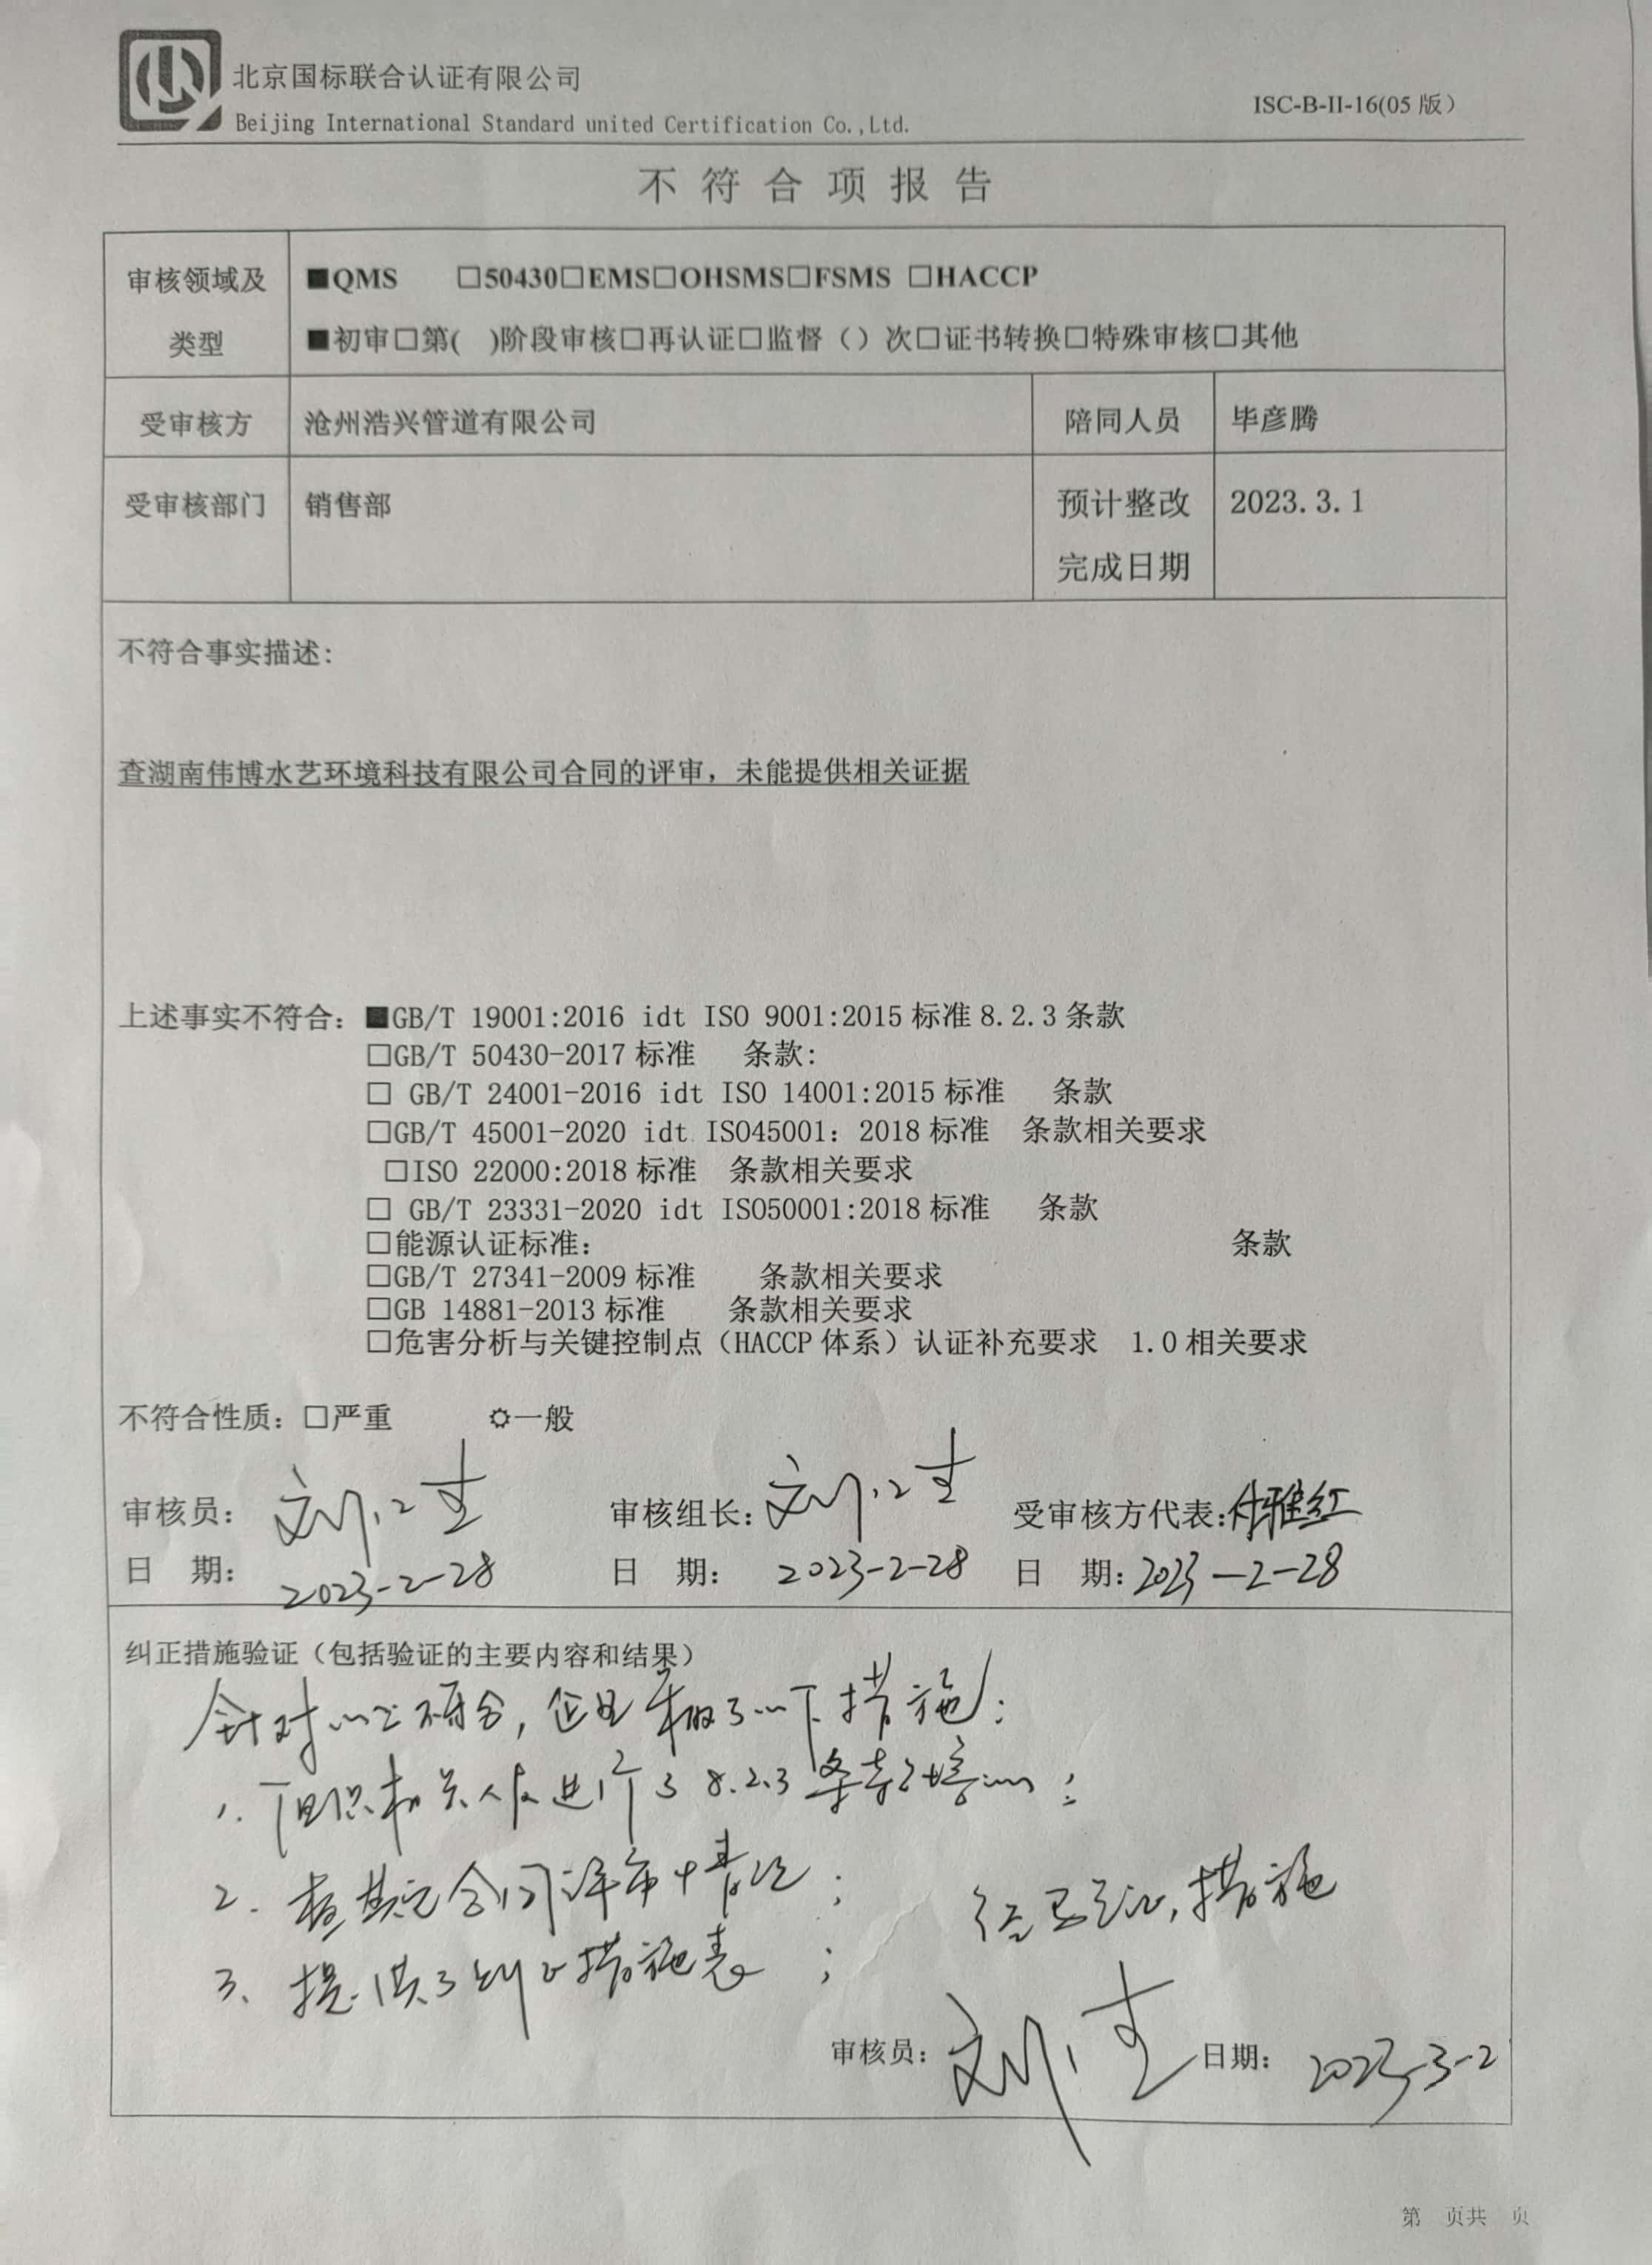 北京国标联合认证有限公司
Beijing International Standard united Certification Co.,Ltd.
ISC-B-II-16(05 版）
不符合项报告
审核领域及类型
■QMS □50430□EMS□OHSMS□FSMS □HACCP
■初审□第( )阶段审核□再认证□监督（）次□证书转换□特殊审核□其他
受审核方 沧州浩兴管道有限公司 陪同人员 毕彦腾
受审核部门 销售部 预计整改完成日期 2023.3.1
不符合事实描述：
查湖南伟博水艺环境科技有限公司合同的评审，未能提供相关证据
上述事实不符合：■GB/T 19001:2016 idt ISO 9001:2015 标准 8.2.3 条款
□GB/T 50430-2017 标准 条款：
□ GB/T 24001-2016 idt ISO 14001:2015 标准 条款
□GB/T 45001-2020 idt ISO45001：2018 标准 条款相关要求
□ISO 22000:2018 标准 条款相关要求
□ GB/T 23331-2020 idt ISO50001:2018 标准 条款
□能源认证标准： 条款
□GB/T 27341-2009 标准 条款相关要求
□GB 14881-2013 标准 条款相关要求
□危害分析与关键控制点（HACCP 体系）认证补充要求 1.0 相关要求
不符合性质：□严重 ☼一般
审核员： 审核组长： 受审核方代表：付雅红
日 期：2023-2-28 日 期：2023-2-28 日 期：2023-2-28
纠正措施验证（包括验证的主要内容和结果）
针对以上不符合，企业采取了以下措施：
1. 组织相关人员进行了 8.2.3 条款培训；
2. 查其它合同评审情况；
3、提供了纠正措施表；
经验证，措施
审核员： 日期：2023-3-2
第 页共 页